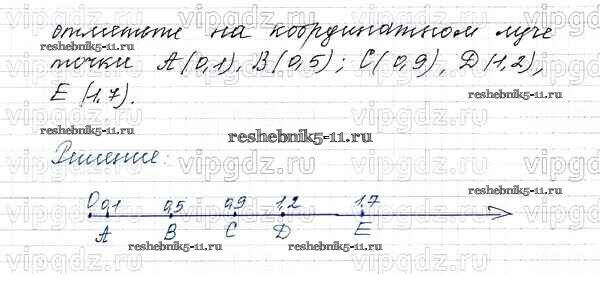 vipgdz.ru vipgdz.ru vipgdz.ru
отметьте на координатном луче
точки A(0,1), B(0,5); C(0,9), D(1,2),
reshebnik5-11.ru
reshebnik5-11.ru
E(1,7).
reshebnik5-11.ru
vipgdz.ru vipgdz.ru vipgdz.ru
reshebnik5-11.ru
Решение:
vipgdz.ru vipgdz.ru vipgdz.ru
reshebnik5-11.ru
0 0,1 0,5 0,9 1,2 1,7
A B C D E
reshebnik5-11.ru reshebnik5-11.ru
vipgdz.ru vipgdz.ru vipgdz.ru